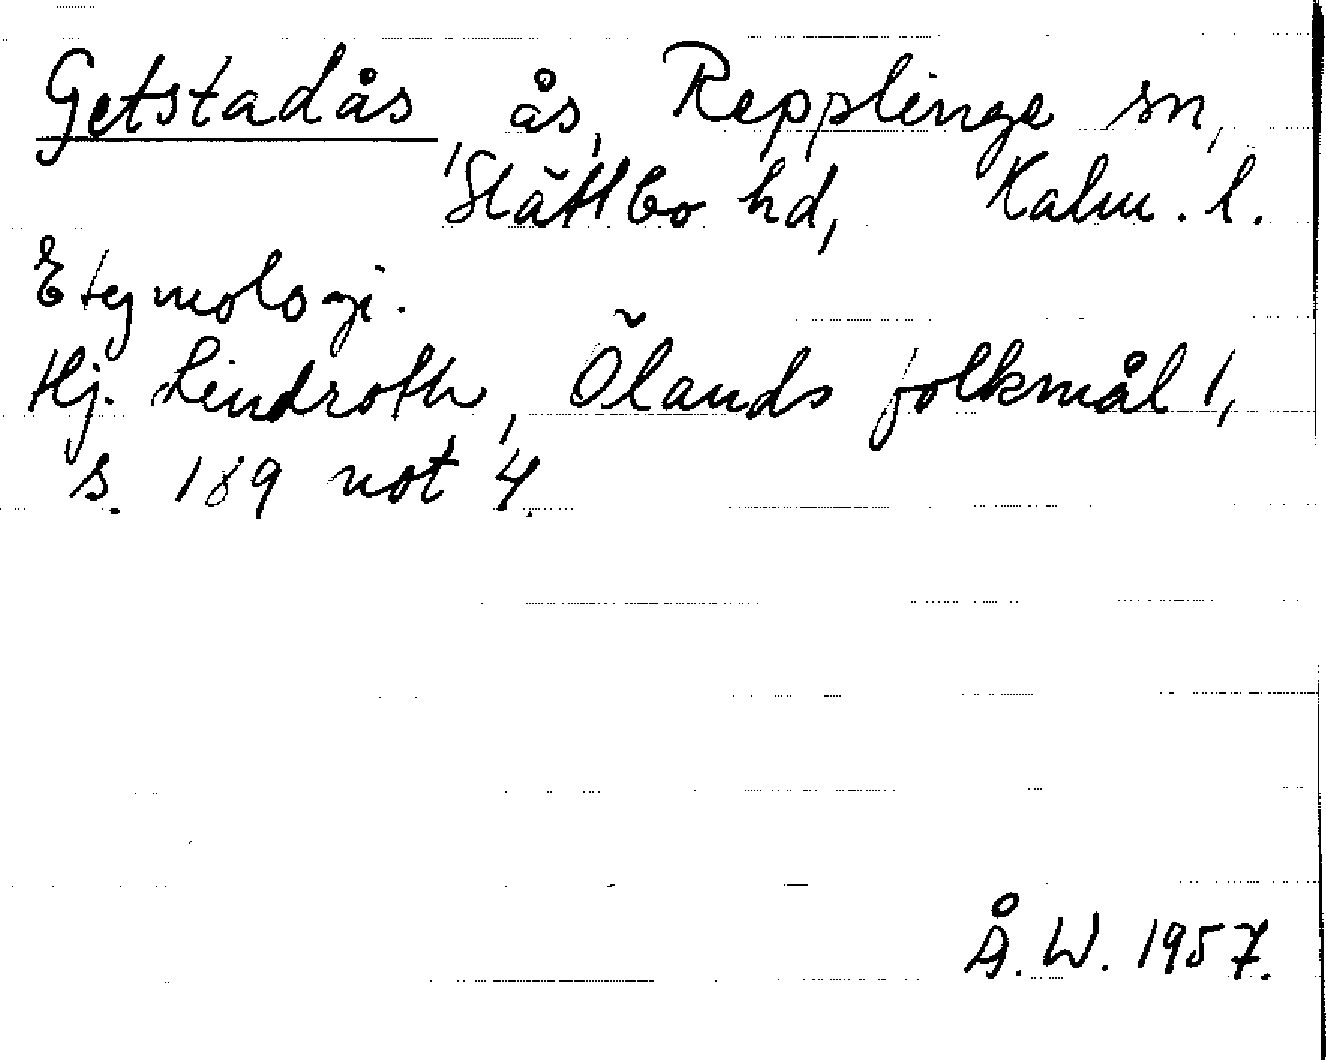 Getstadås, ås, Repplinge sn,
Slättbo hd, Kalm. l.
Etymologi.
Hj. Lindroth, Ölands folkmål 1,
s. 189 not 4.
Å. W. 1957.